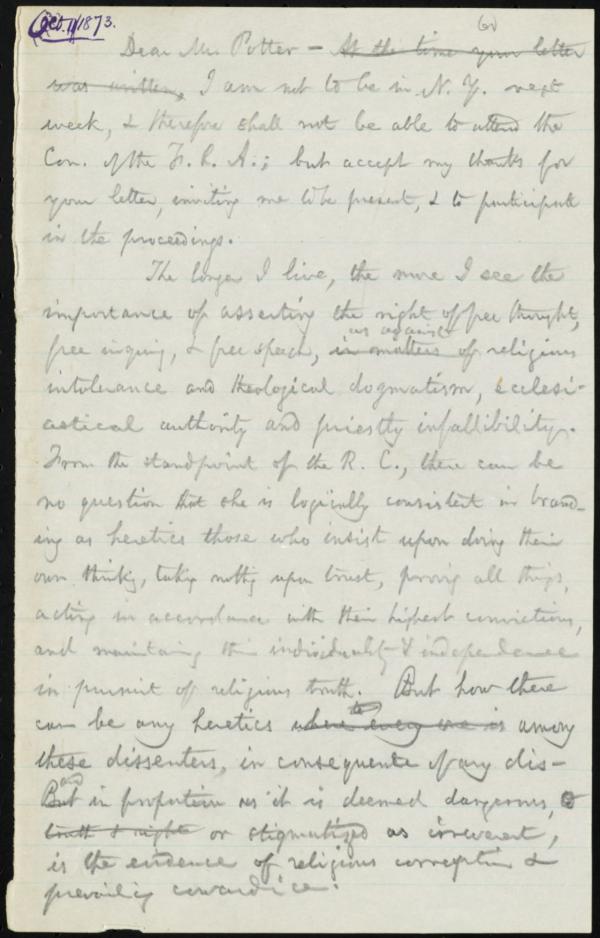 Oct. 11, 1873.
Dear Mr. Potter — At the time your letter
was written, I am not to be in N. Y. next
week, & therefore shall not be able to attend the
Con. of the F. R. A.; but accept my thanks for
your letter, inviting me to be present, & to participate
in the proceedings.
The longer I live, the more I see the
importance of asserting the right of free thought,
as against
free inquiry, & free speech, in matters of religious
intolerance and theological dogmatism, ecclesi-
astical authority and priestly infallibility.
From the standpoint of the R. C., there can be
no question that she is logically consistent in brand-
ing as heretics those who insist upon doing their
own thinking, taking nothing upon trust, proving all things,
acting in accordance with their highest convictions,
and maintaining their individuality & independence
in pursuit of religious truth. But how there
can be any heretics where every one is among
these dissenters, in consequence of any dis-
and
But in proportion as it is deemed dangerous,
truth & right or stigmatized as irreverent,
is the evidence of religious corruption &
prevailing cowardice.